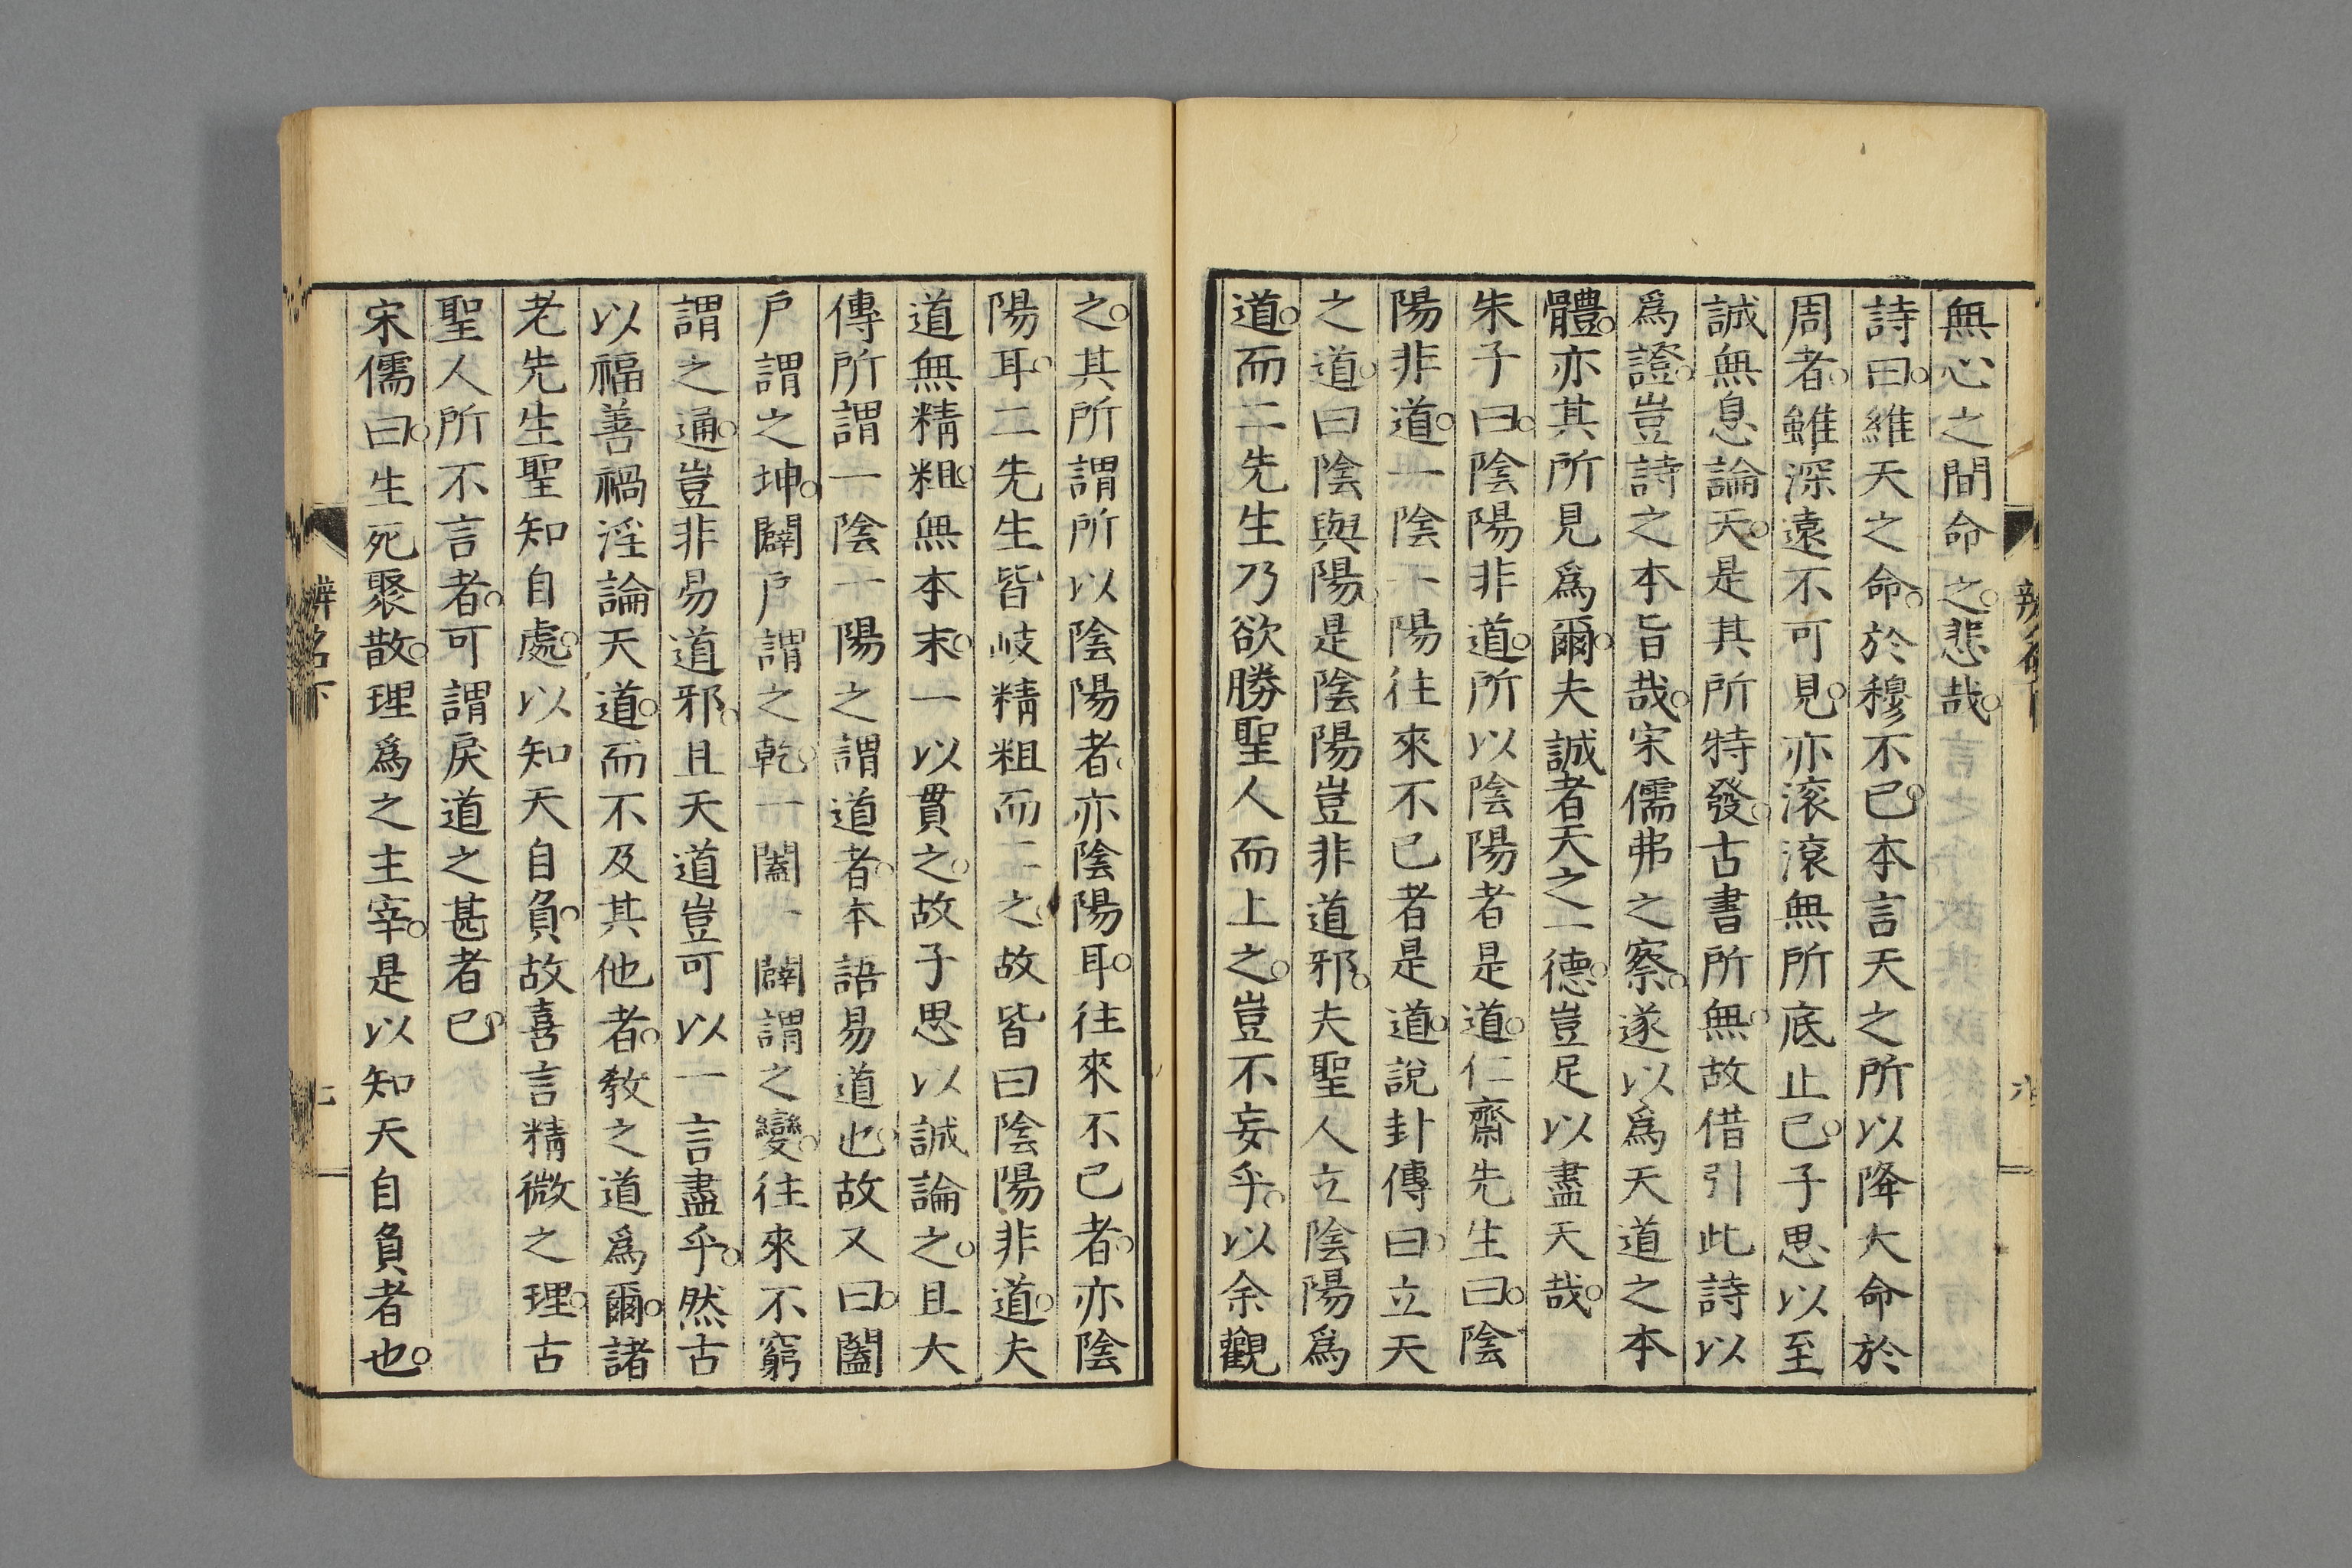 無心之間命之悲哉
詩曰維天之命於穆不已本言天之所以降大命於
周者雖深遠不可見亦滾滾無所底止已子思以至
誠無息論天是其所特發古書所無故借引此詩以
爲證豈詩之本旨哉宋儒弗之察遂以爲天道之本
體亦其所見爲爾夫誠者天之一德豈足以盡天哉
朱子曰陰陽非道所以陰陽者是道仁齋先生曰陰
陽非道一陰一陽往來不已者是道說卦傳曰立天
之道曰陰與陽是陰陽豈非道邪夫聖人立陰陽爲
道而二先生乃欲勝聖人而上之豈不妄乎以余觀
之其所謂所以陰陽者亦陰陽耳往來不已者亦陰
陽耳二先生皆岐精粗而二之故皆曰陰陽非道夫
道無精粗無本末一以貫之故子思以誠論之且大
傳所謂一陰一陽之謂道者本語易道也故又曰闔
戶謂之坤闢戶謂之乾一闔一闢謂之變往來不窮
謂之通豈非易道邪且天道豈可以一言盡乎然古
以福善禍淫論天道而不及其他者教之道爲爾諸
老先生聖知自處以知天自負故喜言精微之理古
聖人所不言者可謂戾道之甚者已
宋儒曰生死聚散理爲之主宰是以知天自負者也
辨名下